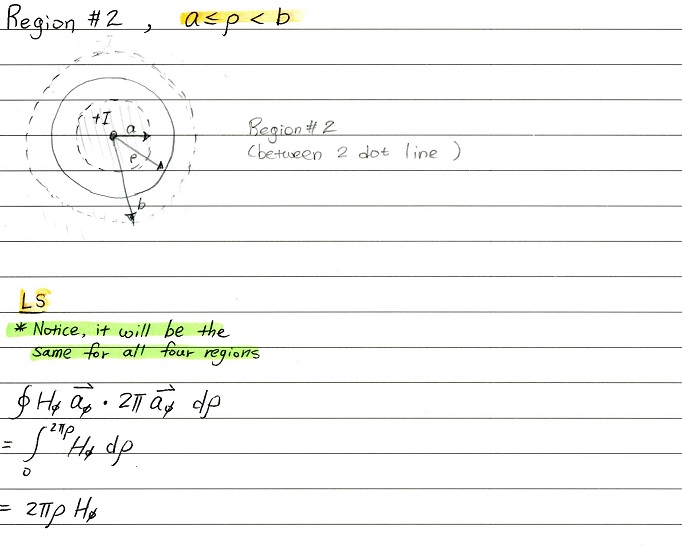 Region #2 , a ≤ ρ < b
+I
a
ρ
b
Region #2
(between 2 dot line )
LS
* Notice, it will be the
same for all four regions
∮ H𝜙 a⃗𝜙 · 2π a⃗𝜙 dρ
= ∫₀^2πρ H𝜙 dρ
= 2πρ H𝜙